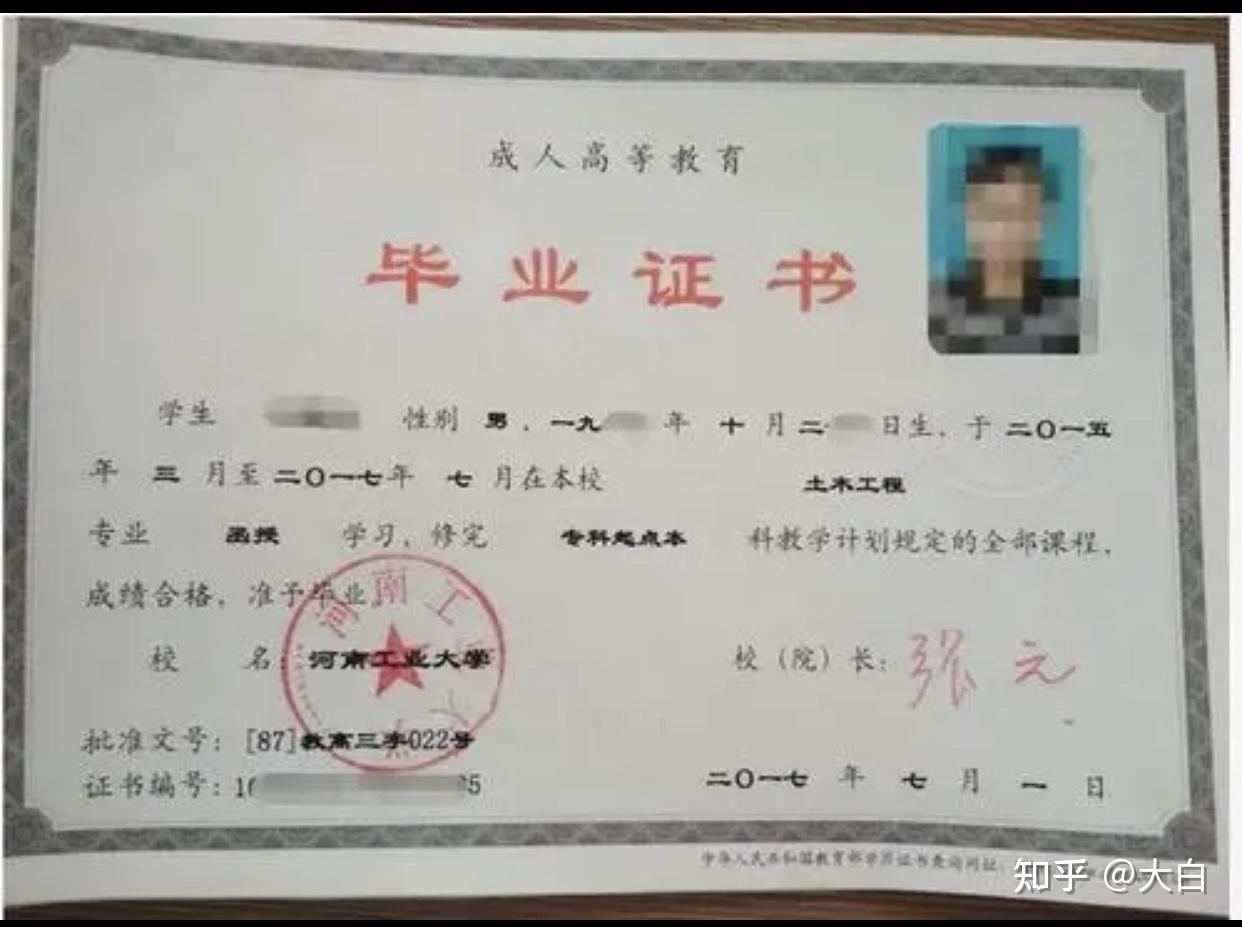 成人高等教育
毕业证书
学生 性别 男，一九 年 十 月 二 日生，于 二〇一五
年 三 月至 二〇一七年 七 月在本校 土木工程
专业 函授 学习，修完 专科起点本 科教学计划规定的全部课程，
成绩合格，准予毕业。
校 名：河南工业大学 校（院）长：张元
河南工业大学
批准文号：[87]教高三字022号
证书编号：1 5 二〇一七 年 七 月 一 日
中华人民共和国教育部学历证书查询网址：
知乎 @大白